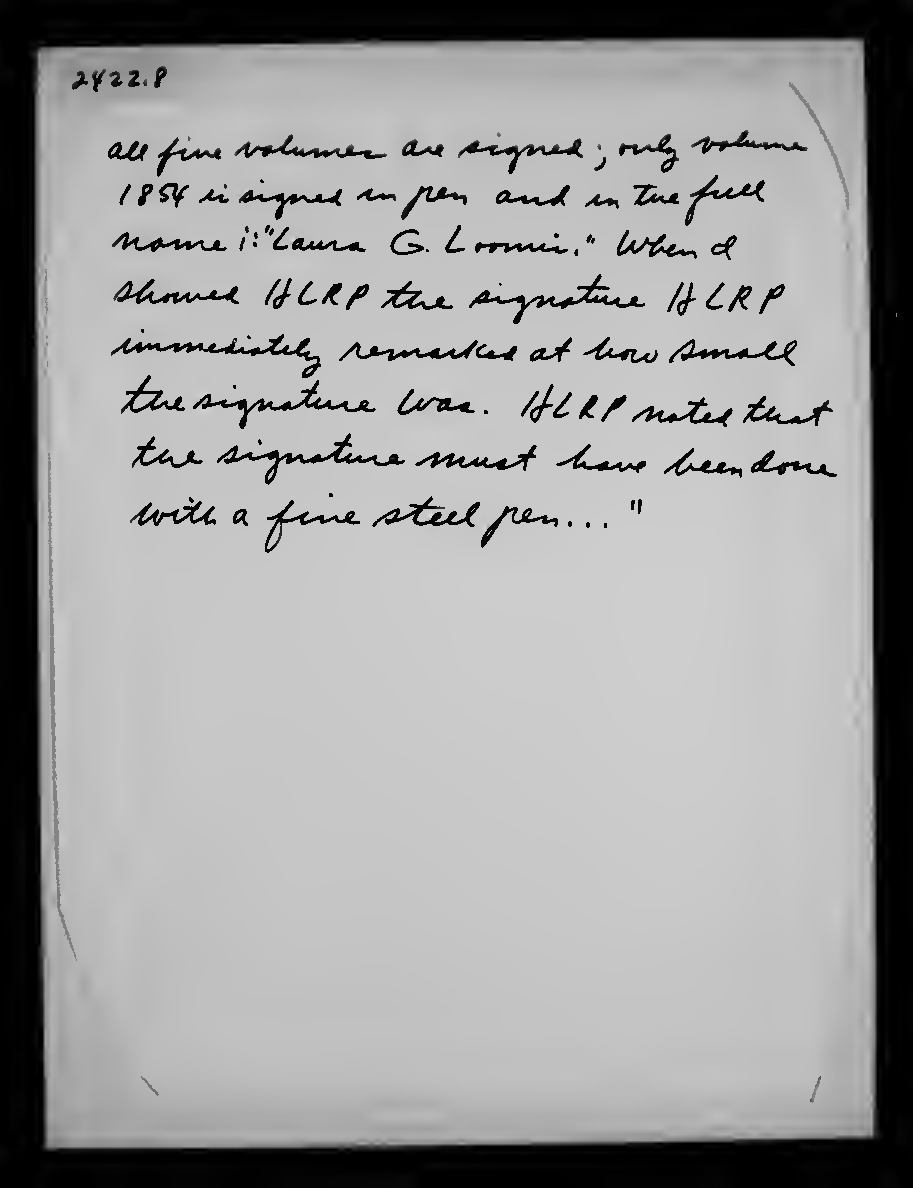 2422.8
all five volumes are signed; only volume
1854 is signed in pen and in the full
name i:"Laura G. Loomis." When I
showed HLRP the signature HLRP
immediately remarked at how small
the signature was. HLRP noted that
the signature must have been done
with a fine steel pen..."